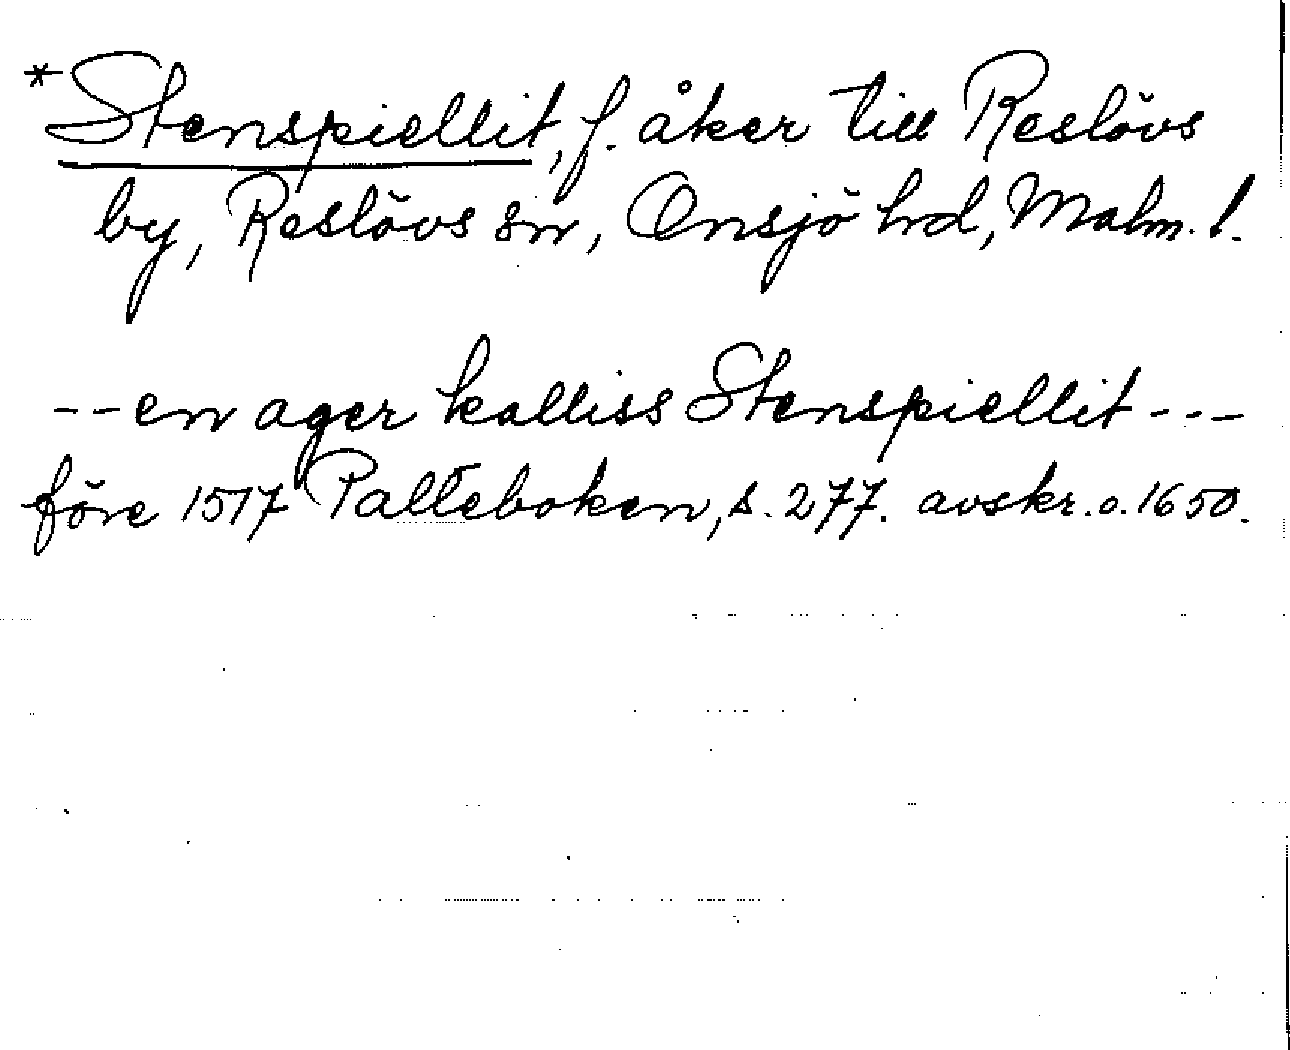 *Stenspiellit, f. åker till Reslövs
by, Reslövs sn, Onsjö hrd, Malm. l.
-- en ager kalliss Stenspiellit ---
före 1517 Palteboken, s. 277. avskr. o. 1650.